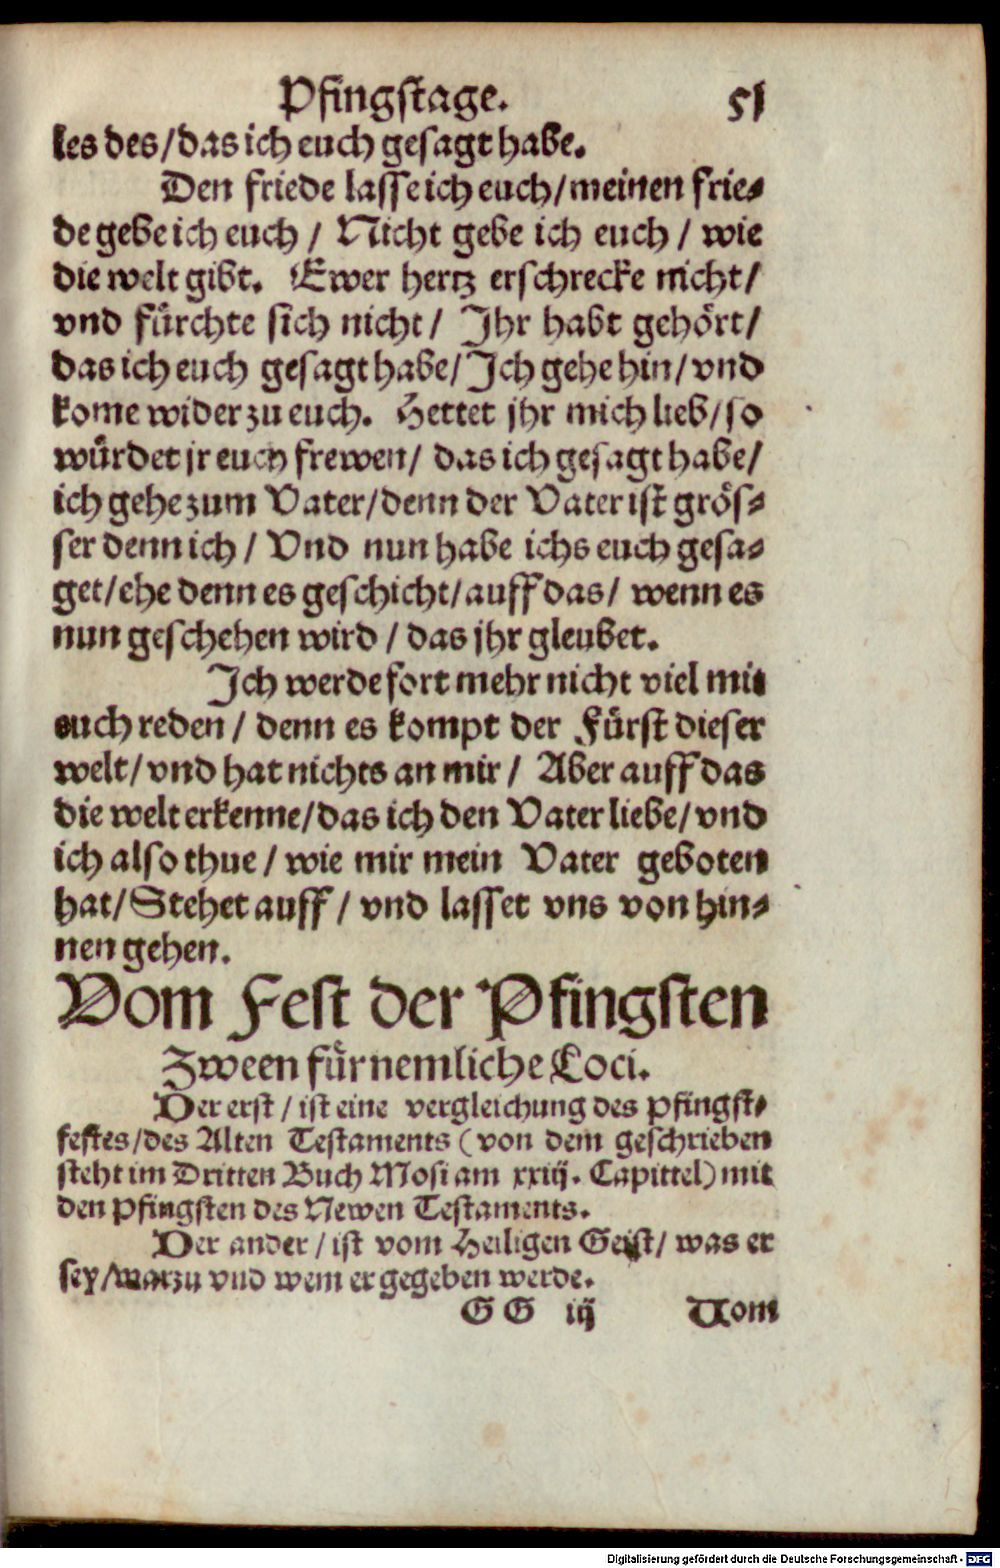 Pfingstage. 51
les des/das ich euch gesagt habe.
Den friede lasse ich euch/meinen frie-
de gebe ich euch / Nicht gebe ich euch / wie
die welt gibt. Ewer hertz erschrecke nicht/
vnd fürchte sich nicht/ Jhr habt gehört/
das ich euch gesagt habe/Jch gehe hin/vnd
kome wider zu euch. Hettet jhr mich lieb/so
würdet jr euch frewen/ das ich gesagt habe/
ich gehe zum Vater/denn der Vater ist grös-
ser denn ich / Vnd nun habe ichs euch gesa-
get/ehe denn es geschicht/auff das/ wenn es
nun geschehen wird / das jhr gleubet.
Jch werde fort mehr nicht viel mit
euch reden / denn es kompt der Fürst dieser
welt/vnd hat nichts an mir / Aber auff das
die welt erkenne/das ich den Vater liebe/vnd
ich also thue / wie mir mein Vater geboten
hat/Stehet auff / vnd lasset vns von hin-
nen gehen.
Vom Fest der Pfingsten
Zween fürnemliche Loci.
Der erst / ist eine vergleichung des Pfingst-
festes/des Alten Testaments (von dem geschrieben
steht im Dritten Buch Mosi am xxiij. Capittel) mit
den Pfingsten des Newen Testaments.
Der ander / ist vom Heiligen Geist/ was er
sey/warzu vnd wem er gegeben werde.
GG iij Vom
Digitalisierung gefördert durch die Deutsche Forschungsgemeinschaft - DFG